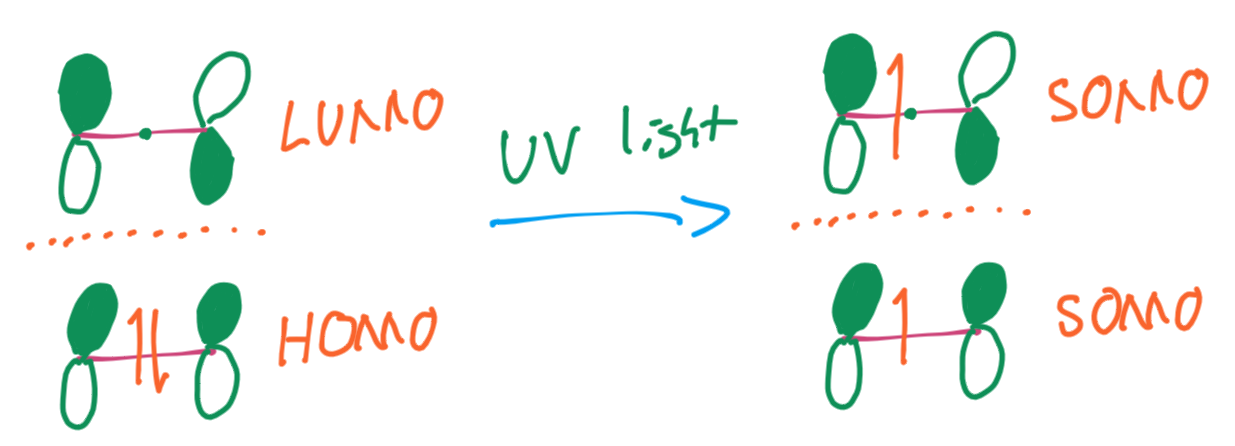 LUMO
HOMO
UV light
SOMO
SOMO